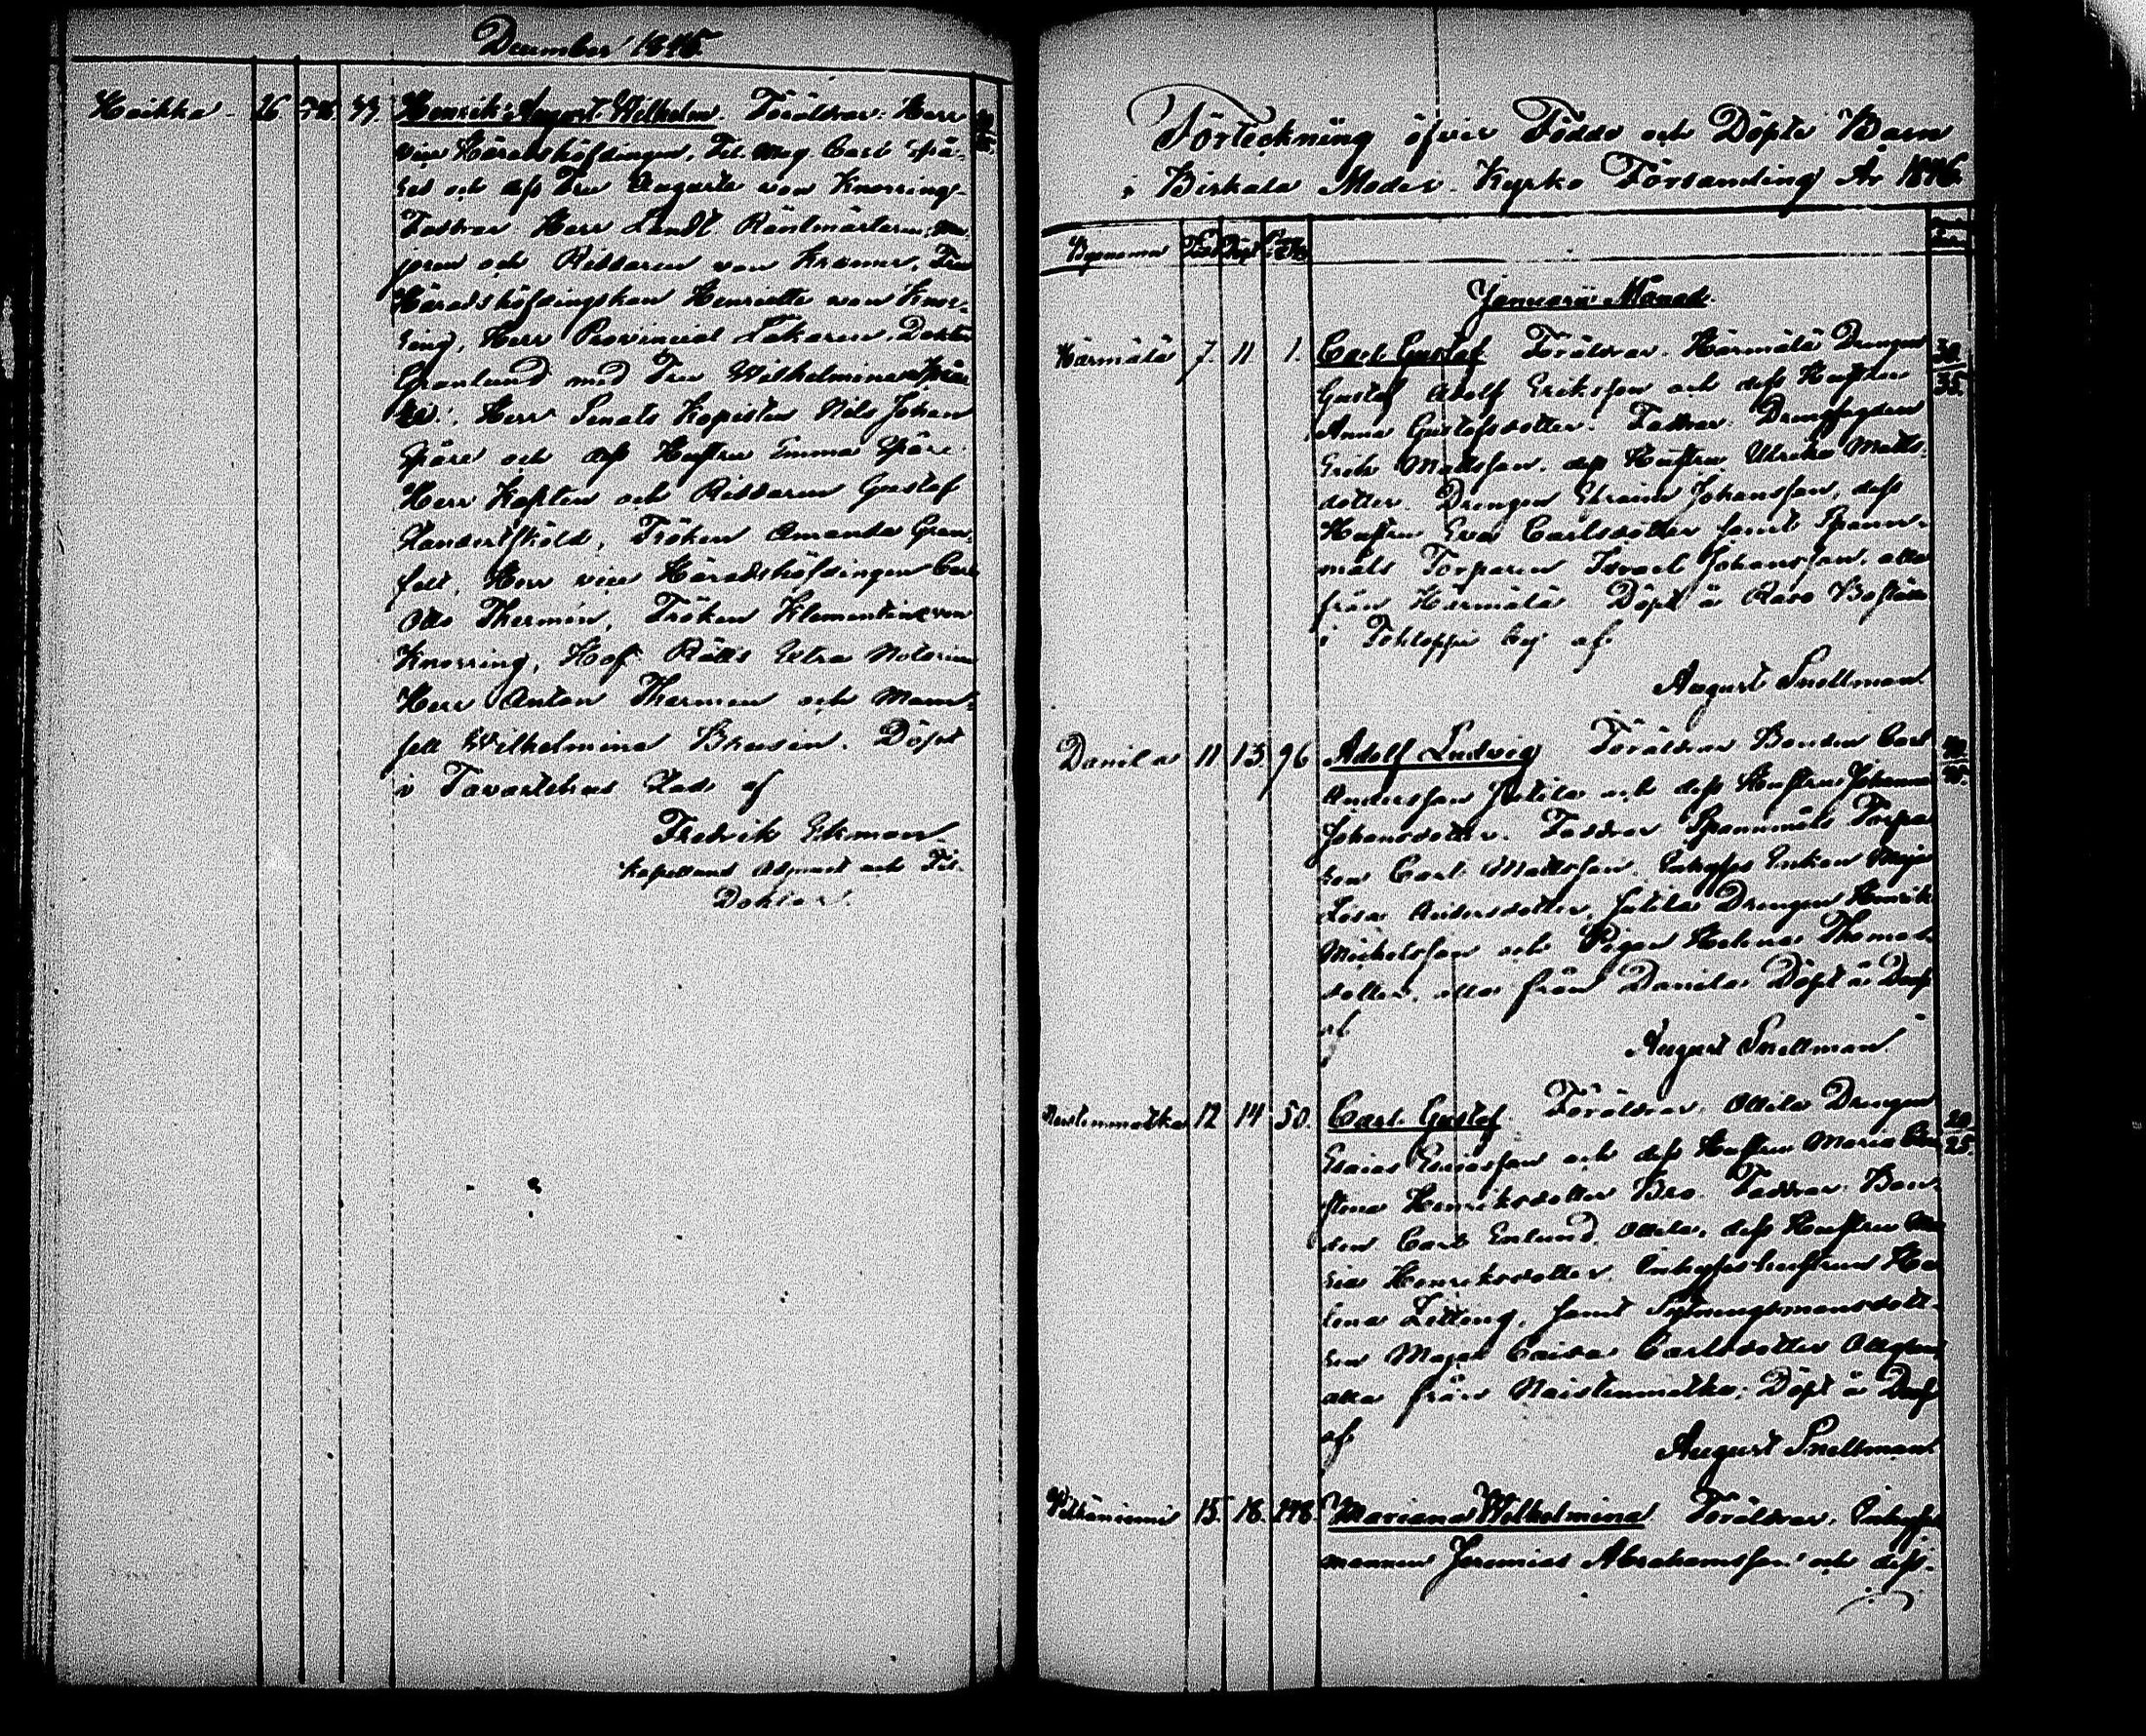 December 1845.
Haikka - 26. 33 Henrik August Wilhelm. Föräldrar: Herr
vice Häradshöfdingen, Fil. Mag. Carl Spå-
re och dess Fru Augusta von Knorring
Faddrar Herr Landt Räntmästaren, Ma-
joren och Riddaren von Kræmer, Fru
Häradshöfdingskan Henriette von Knor-
ring, Herr Provincial Läkaren, Doktor
Granlund med Fru Wilhelmina
Herr Senats Kopisten Nils Johan
Spåre och dess Hustru Emma Spåre
Herr Kapten och Riddaren Gustaf
Fröken Amanda Gran-
felt, Herr vice Häradshöfdingen Carl
Otto Thermén, Fröken Klementine von
Knorring, Hof Rätts Extra Notarien
Herr Anton Thermen och Mam-
sell Wilhelmina Döpt
i Tavastehus Stad af
Fredrik Ekman
Kapellans Adjunct och Fil.
Doktor.
Förteckning öfver Födde och Döpte Barn
i Birkala Moder-Kyrko Församling År 1846.
Bynamn Född Döpt
Januarii Månad.
Härmälä 7. 11 1. Carl Gustaf Föräldrar. Härmälä Drengen 30/35.
Gustaf Adolf Eriksson och dess Hustru
Anna Gustafsdotter. Faddrar: Drengfogden
Erik Mattsson, dess Hustru Ulrika Matts-
dotter. Drengen Efraim Johansson, dess
Hustru Eva Carlsdotter samt Spann-
måls Torparen Israel Johansson, alla
från Härmälä Döpt å Raso Boställe
i Tohloppi by af
August Snellman
Danila 11 13. 96 Adolf Ludvig Föräldrar Bonden Carl
Andersson Jutila och dess Hustru Johanna
Johansdotter. Faddrar Spannmåls Torpa-
ren Carl Mattsson. Inhyses Enkan Maja
Lisa Andersdotter, Jutila Drengen Henrik
Michelsson och Pigan Helena Thomas-
dotter, alla från Danila Döpt å Dags
af
August Snellman
Naistenmatka 12 14 50. Carl Gustaf Föräldrar. Ollila Drengen 20/25.
Esaias Esaiasson och dess Hustru Maria
stina Henriksdotter Bro. Faddrar: Bon-
den Carl Enlund, Ollila, dess Hustru Ma-
ria Henriksdotter. Inhyseshustrun He-
lena Letting, samt
ren Maja Caisa Carlsdotter
alla från Naistenmatka, Döpt å Dags
af
August Snellman
Pitkäniemi 15. 18. 248. Mariana Wilhelmina Föräldrar. Inhyses
mannen Jeremias Abrahamsson och dess